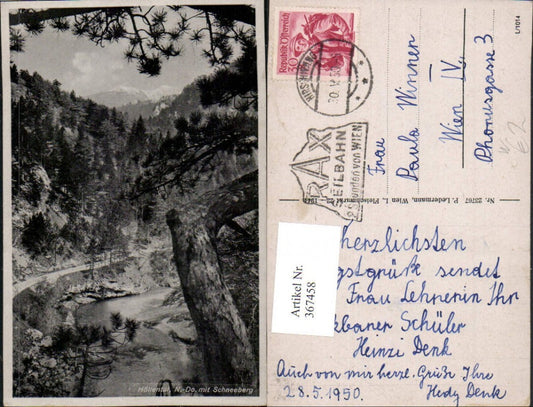 Höllental, N.-Do. mit Schneeberg
L/1014
Republik Österreich
30
HIRSCHWANG
30. V. 50
RAX
SEILBAHN
2 Stunden von WIEN
Frau
Paula Winner
Wien IV.
Phorusgasse 3
62
Nr. 23767 P. Ledermann, Wien I., Fleischmarkt
1949
Artikel Nr.
367458
herzlichsten
gstgrüße sendet
Frau Lehrerin Ihr
kbarer Schüler
Heinzi Denk
Auch von mir herzl. Grüße Ihre
28.5.1950. Hedy Denk